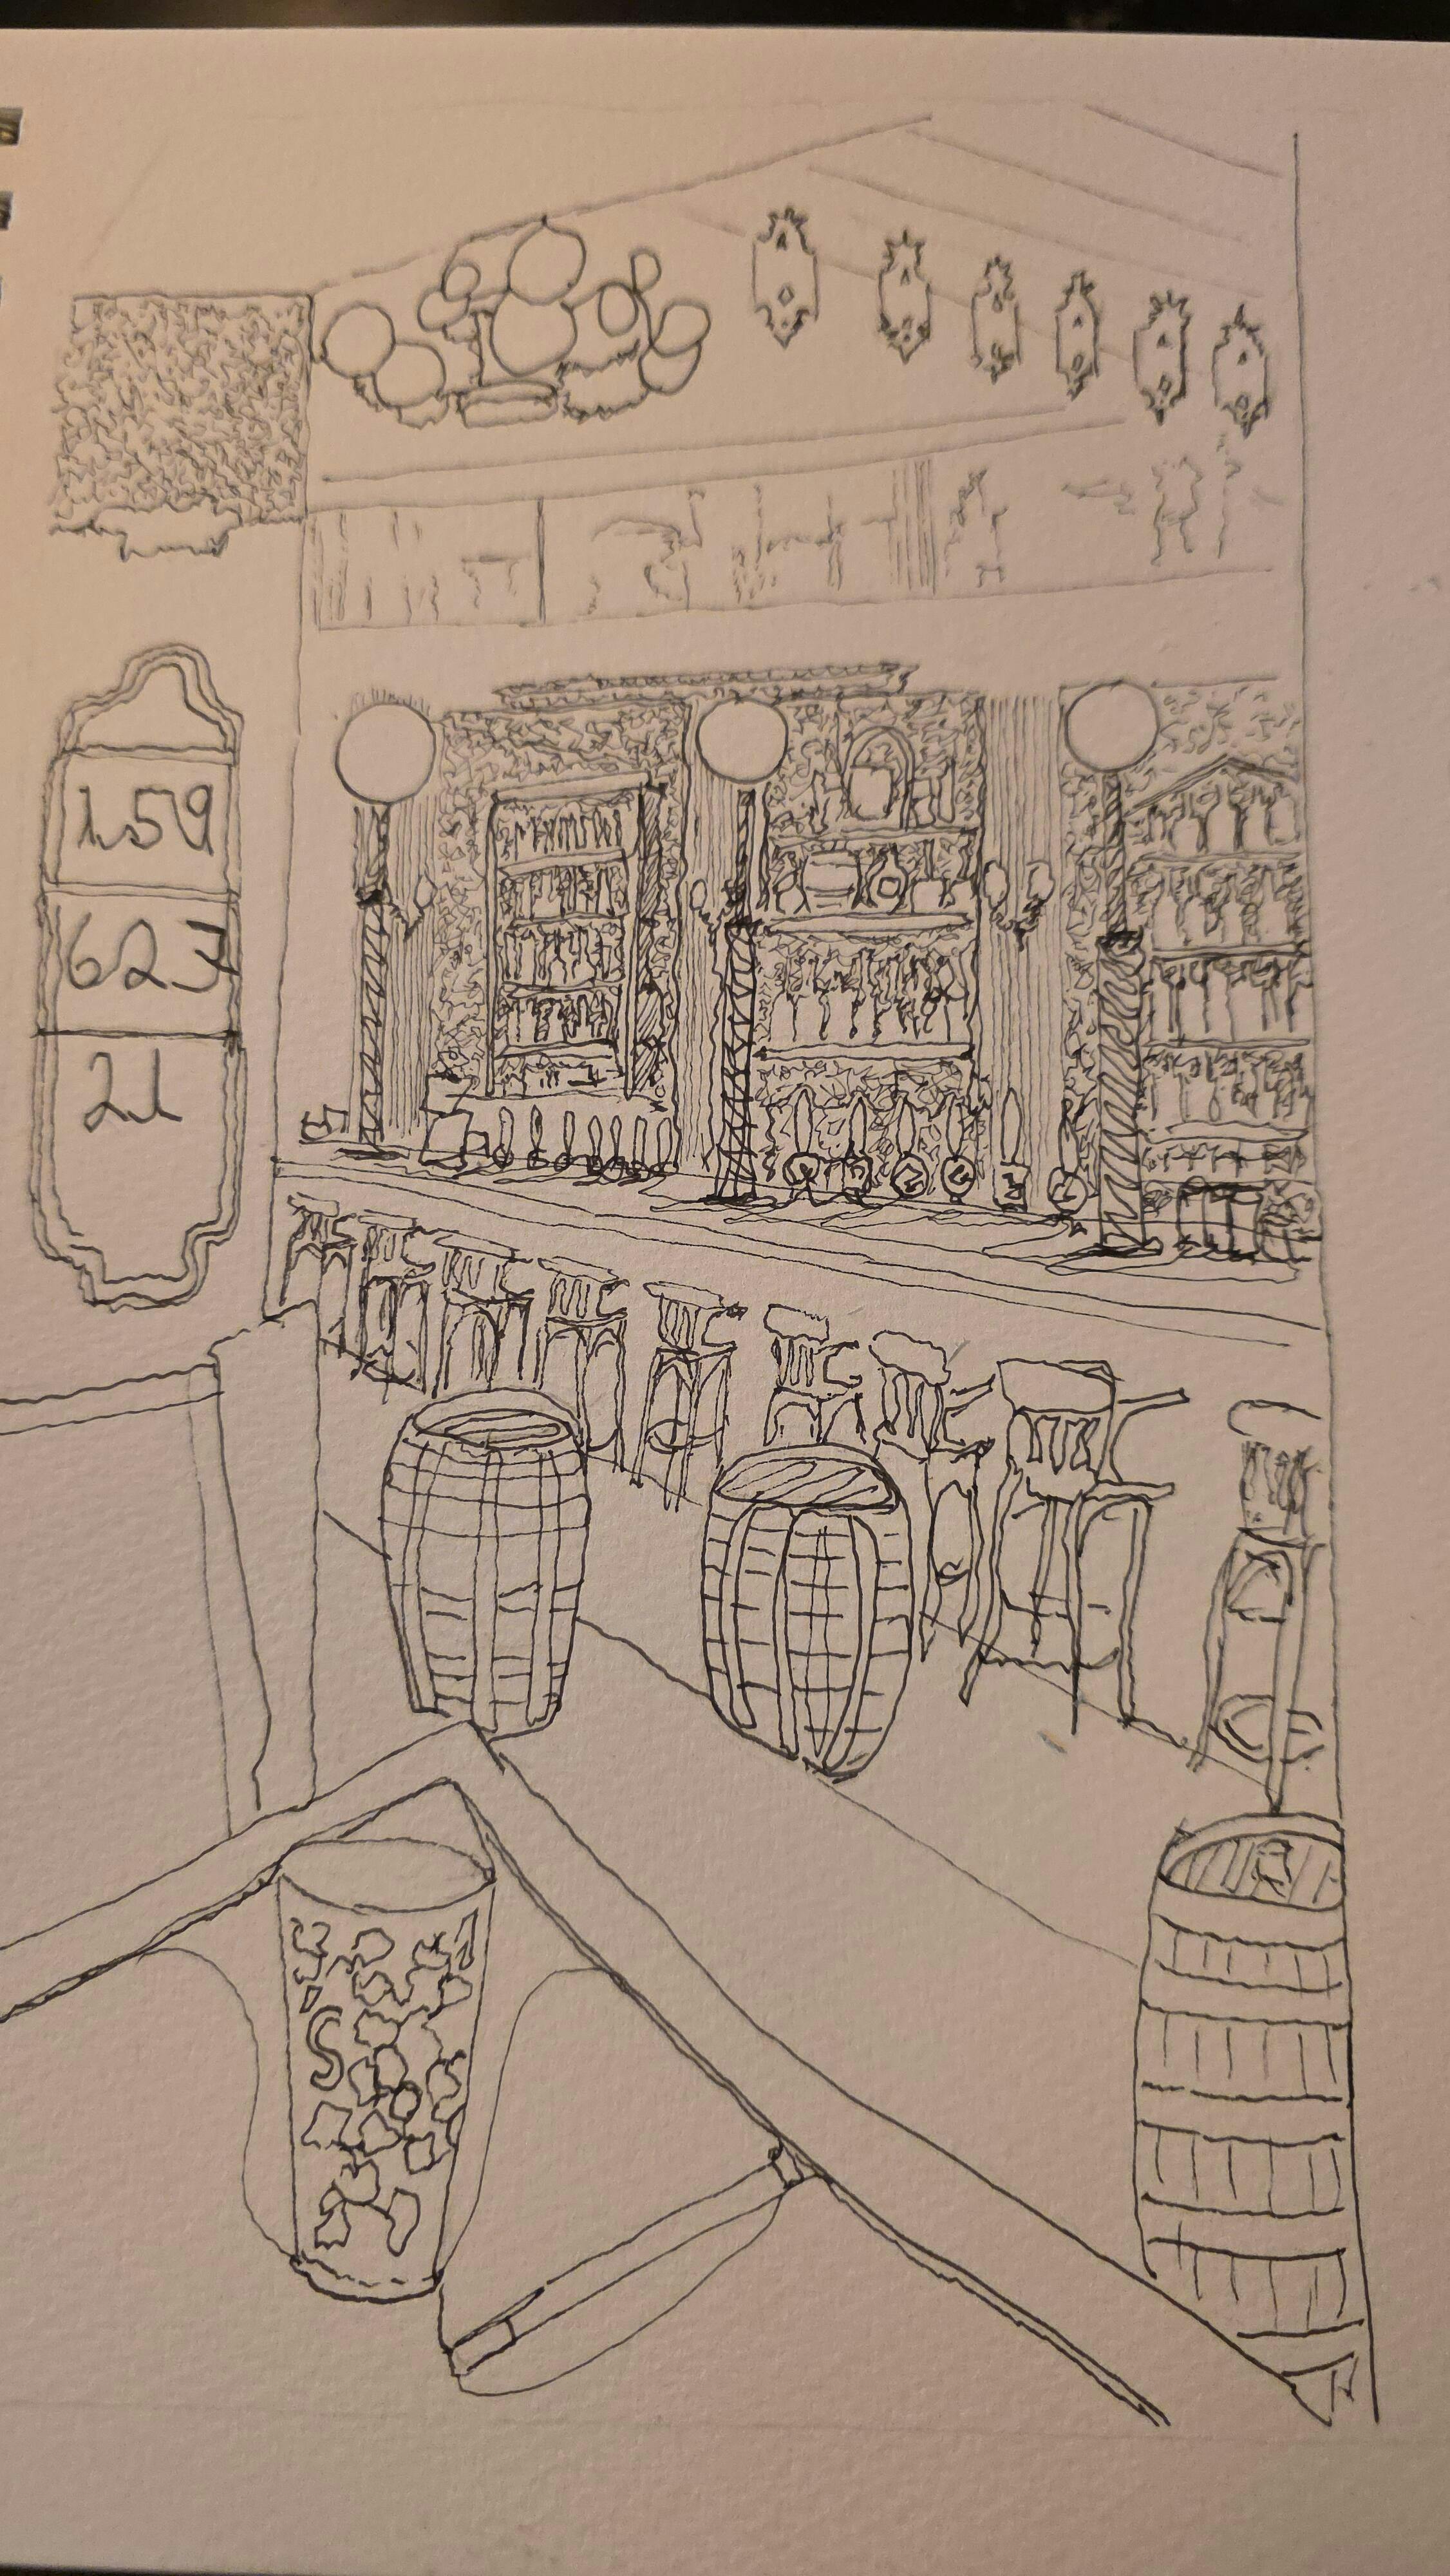 159
623
21